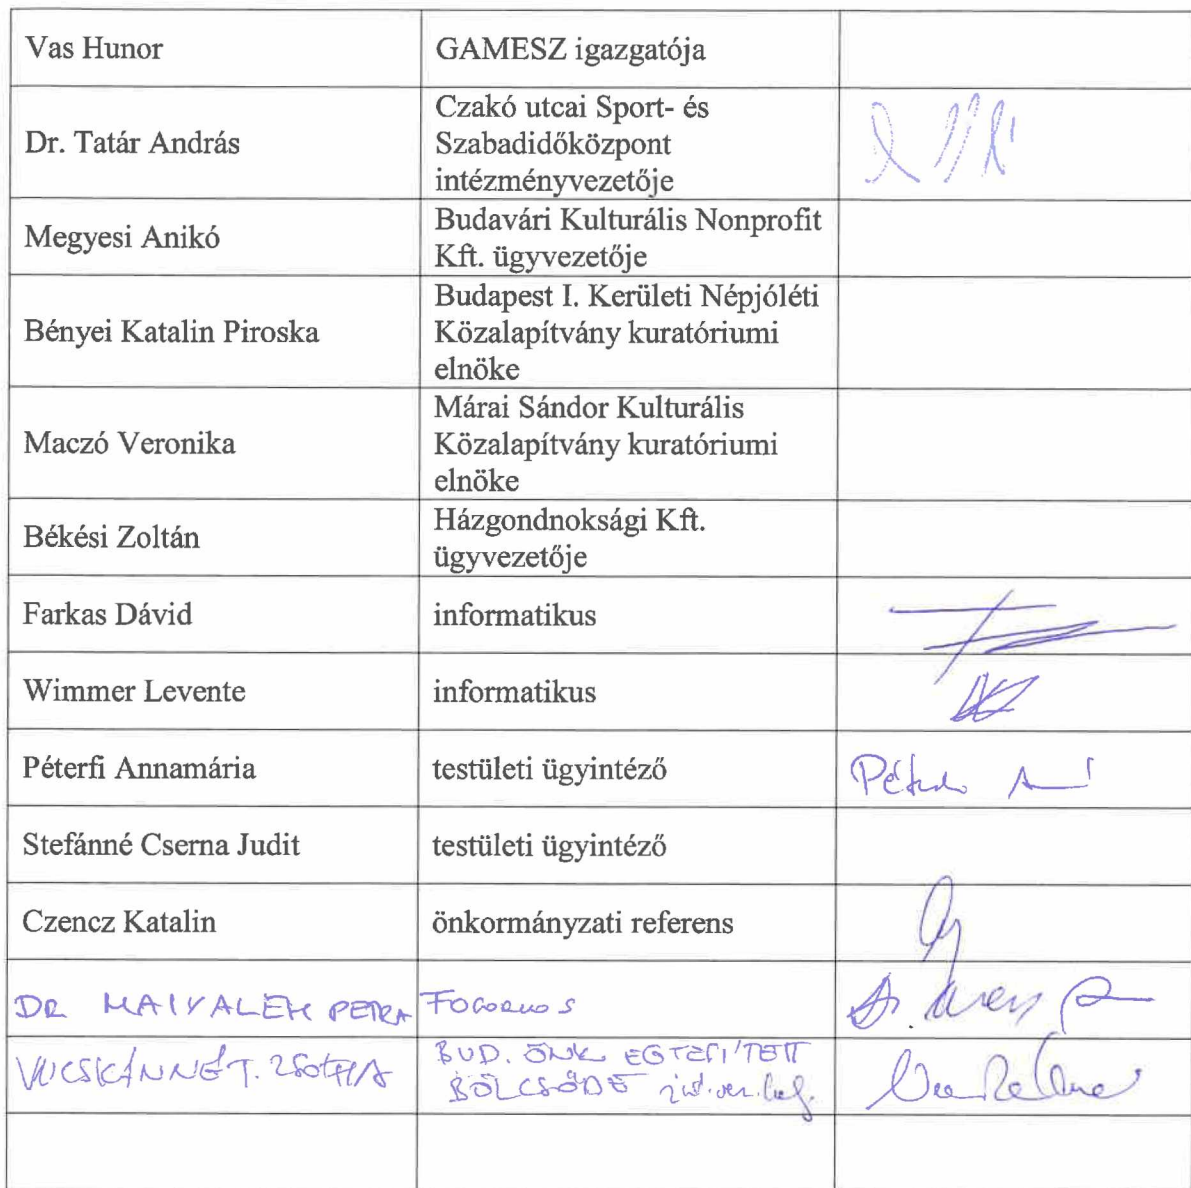 Vas Hunor
GAMESZ igazgatója
Dr. Tatár András
Czakó utcai Sport- és
Szabadidőközpont
intézményvezetője
Megyesi Anikó
Budavári Kulturális Nonprofit
Kft. ügyvezetője
Bényei Katalin Piroska
Budapest I. Kerületi Népjóléti
Közalapítvány kuratóriumi
elnöke
Maczó Veronika
Márai Sándor Kulturális
Közalapítvány kuratóriumi
elnöke
Békési Zoltán
Házgondnoksági Kft.
ügyvezetője
Farkas Dávid
informatikus
Wimmer Levente
informatikus
Péterfi Annamária
testületi ügyintéző
Stefánné Cserna Judit
testületi ügyintéző
Czencz Katalin
önkormányzati referens
DR PETRA
T. ZSÓFIA
BUD. ÖNK EGYESÍTETT
BÖLCSŐDE